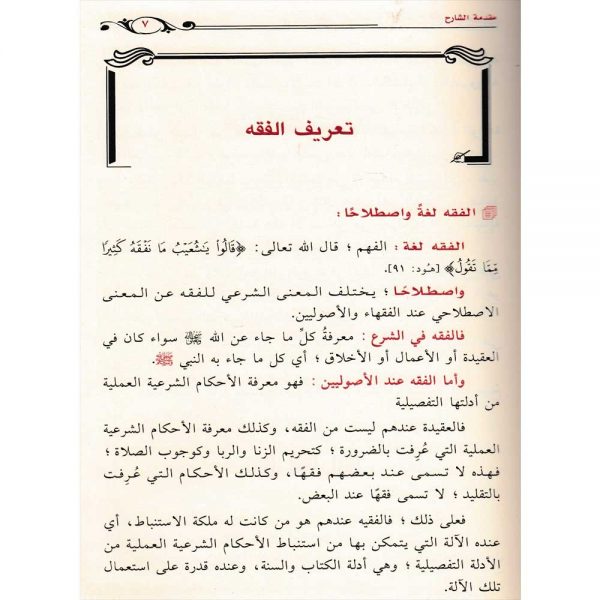 مقدمة الشارح
٧
تعريف الفقه
الفقه لغةً واصطلاحًا :
الفقه لغة : الفهم ؛ قال الله تعالى: ﴿قَالُوا۟ يَـٰشُعَيْبُ مَا نَفْقَهُ كَثِيرًا
مِّمَّا تَقُولُ﴾ [هُود: ٩١].
واصطلاحًا ؛ يختلف المعنى الشرعي للفقه عن المعنى
الاصطلاحي عند الفقهاء والأصوليين.
فالفقه في الشرع : معرفةُ كلِّ ما جاء عن الله ﷻ سواء كان في
العقيدة أو الأعمال أو الأخلاق ؛ أي كل ما جاء به النبي ﷺ.
وأما الفقه عند الأصوليين : فهو معرفة الأحكام الشرعية العملية
من أدلتها التفصيلية
فالعقيدة عندهم ليست من الفقه، وكذلك معرفة الأحكام الشرعية
العملية التي عُرِفت بالضرورة ؛ كتحريم الزنا والربا وكوجوب الصلاة ؛
فهذه لا تسمى عند بعضهم فقهًا، وكذلك الأحكام التي عُرِفت
بالتقليد ؛ لا تسمى فقهًا عند البعض.
فعلى ذلك ؛ فالفقيه عندهم هو من كانت له ملكة الاستنباط، أي
عنده الآلة التي يتمكن بها من استنباط الأحكام الشرعية العملية من
الأدلة التفصيلية ؛ وهي أدلة الكتاب والسنة، وعنده قدرة على استعمال
تلك الآلة.